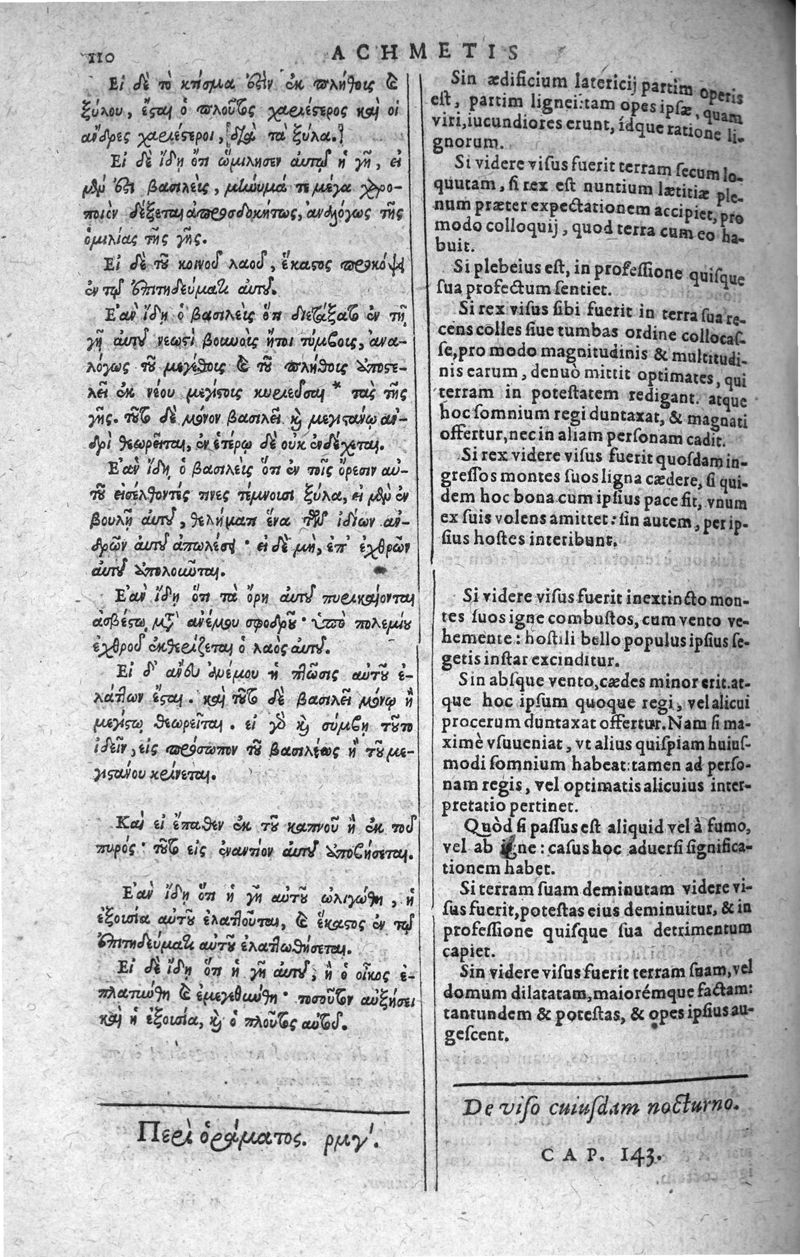 110
ACHMETIS
Εἰ δὲ τὸ κτίσμα ἐστὶν ἐκ πλήθοις καὶ
ξύλου, ἔσται ὁ πλοῦτος χαριέστερος καὶ οἱ
ἄνδρες χαριέστεροι, [διὰ τὰ ξύλα.]
Εἰ δὲ ἴδῃ ὅτι ὡμίλησεν αὐτῷ ἡ γῆ, εἰ
μὲν ἔστι βασιλεὺς, μήνυμά τι μέγα χαρο-
ποιὸν δέξεται ἀπροσδοκήτως, ἀναλόγως τῆς
ὁμιλίας τῆς γῆς.
Εἰ δὲ τοῦ κοινοῦ λαοῦ, ἕκαστος προκόψει
ἐν τῷ ἐπιτηδεύματι αὐτοῦ.
Ἐὰν ἴδῃ ὁ βασιλεὺς ὅτι διετάξατο ἐν τῇ
γῇ αὐτοῦ νεωστὶ βουνοὺς ἤτοι τύμβους, ἀνα-
λόγως τοῦ μεγέθους καὶ τοῦ πλήθους ἀποστε-
λεῖ ἐκ νέου μεγίστοις κυριεῦσαι * τὰς τῆς
γῆς. τοῦτο δὲ μόνον βασιλεῖ καὶ μεγιστάνῳ ἀν-
δρὶ θεωρεῖται, ἐν ἑτέρῳ δὲ οὐκ ἐνδέχεται.
Ἐὰν ἴδῃ ὁ βασιλεὺς ὅτι ἐν τοῖς ὄρεσιν αὐ-
τοῦ εἰσελθόντες τινες τέμνουσι ξύλα, εἰ μὲν ἐν
βουλῇ αὐτοῦ, θελήματι ἕνα τῶν ἰδίων ἀν-
δρῶν αὐτοῦ ἀπολέσει· εἰ δὲ μὴ, ἐπ' ἐχθρῶν
αὐτοῦ ἀπολοῦνται.
Ἐὰν ἴδῃ ὅτι τὰ ὄρη αὐτοῦ πυρικαίονται
ἀσβέστῳ μετ' ἀνέμου σφοδροῦ· ὑπὸ πολεμίου
ἐχθροῦ ἐκθερίζεται ὁ λαὸς αὐτοῦ.
Εἰ δ' ἄνευ ἀνέμου ἡ πτῶσις αὐτοῦ ἐ-
λάττων ἔσται. καὶ τοῦτο δὲ βασιλεῖ μόνῳ ἢ
μεγίστῳ θεωρεῖται. εἰ γὰρ καὶ σύμβῃ τοῦτο
ἰδεῖν, εἰς πρόσωπον τοῦ βασιλέως ἢ τοῦ με-
γιστάνου κρίνεται.
Καὶ εἰ ἔπαθεν ἐκ τοῦ καπνοῦ ἢ ἐκ τοῦ
πυρὸς· τοῦτο εἰς ἐναντίον αὐτοῦ ἀποβήσεται.
Ἐὰν ἴδῃ ὅτι ἡ γῆ αὐτοῦ ὠλιγώθη, ἡ
ἐξουσία αὐτοῦ ἐλαττοῦται, καὶ ἕκαστος ἐν τῷ
ἐπιτηδεύματι αὐτοῦ ἐλαττωθήσεται.
Εἰ δὲ ἴδῃ ὅτι ἡ γῆ αὐτοῦ, ἢ ὁ οἶκος ἐ-
πλατιώθη καὶ ἐμεγεθιώθη· τοσοῦτον αὐξήσει
καὶ ἡ ἐξουσία, καὶ ὁ πλοῦτος αὐτοῦ.
Περὶ ὁράματος. ρμγʹ.
Sin ædificium latericij partim operis
est, partim lignei: tam opes ipsæ, quam
viri, iucundiores erunt, idque ratione li-
gnorum.
Si videre visus fuerit terram secum lo-
quutam, si rex est nuntium lætitiæ ple-
num præter expectationem accipiet, pro
modo colloquij, quod terra cum eo ha-
buit.
Si plebeius est, in professione quisque
sua profectum sentiet.
Si rex visus sibi fuerit in terra sua re-
cens colles siue tumbas ordine collocas-
se, pro modo magnitudinis & multitudi-
nis earum, denuò mittit optimates, qui
terram in potestatem redigant. atque
hoc somnium regi duntaxat, & magnati
offertur, nec in aliam personam cadit.
Si rex videre visus fuerit quosdam in-
gressos montes suos ligna cædere, si qui-
dem hoc bona cum ipsius pace fit, vnum
ex suis volens amittet: sin autem, per ip-
sius hostes interibunt.
Si videre visus fuerit inextincto mon-
tes suos igne combustos, cum vento ve-
hemente: hostili bello populus ipsius se-
getis instar excinditur.
Sin absque vento, cædes minor erit. at-
que hoc ipsum quoque regi, vel alicui
procerum duntaxat offertur. Nam si ma-
ximè vsuueniat, vt alius quispiam huius-
modi somnium habeat: tamen ad perso-
nam regis, vel optimatis alicuius inter-
pretatio pertinet.
Quòd si passus est aliquid vel à fumo,
vel ab igne: casus hoc aduersi significa-
tionem habet.
Si terram suam deminutam videre vi-
sus fuerit, potestas eius deminuitur, & in
professione quisque sua detrimentum
capiet.
Sin videre visus fuerit terram suam, vel
domum dilatatam, maiorémque factam:
tantundem & potestas, & opes ipsius au-
gescent.
De viso cuiusdam nocturno.
CAP. 143.